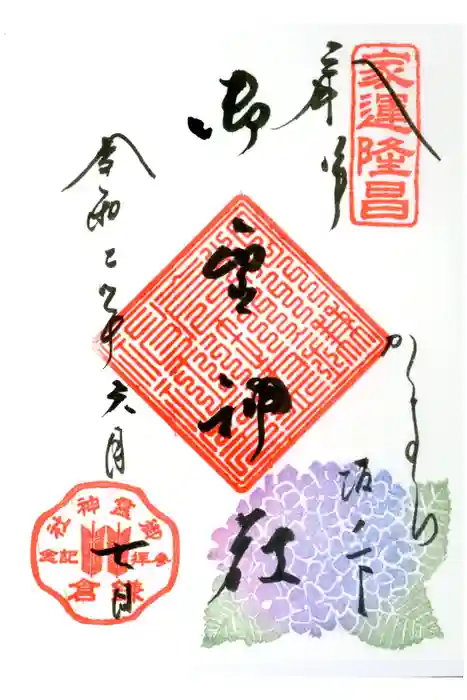 家運隆昌
奉拝
かまくら
坂ノ下
御霊神社
令和二年六月
七日
御霊神社
参拝記念
鎌倉